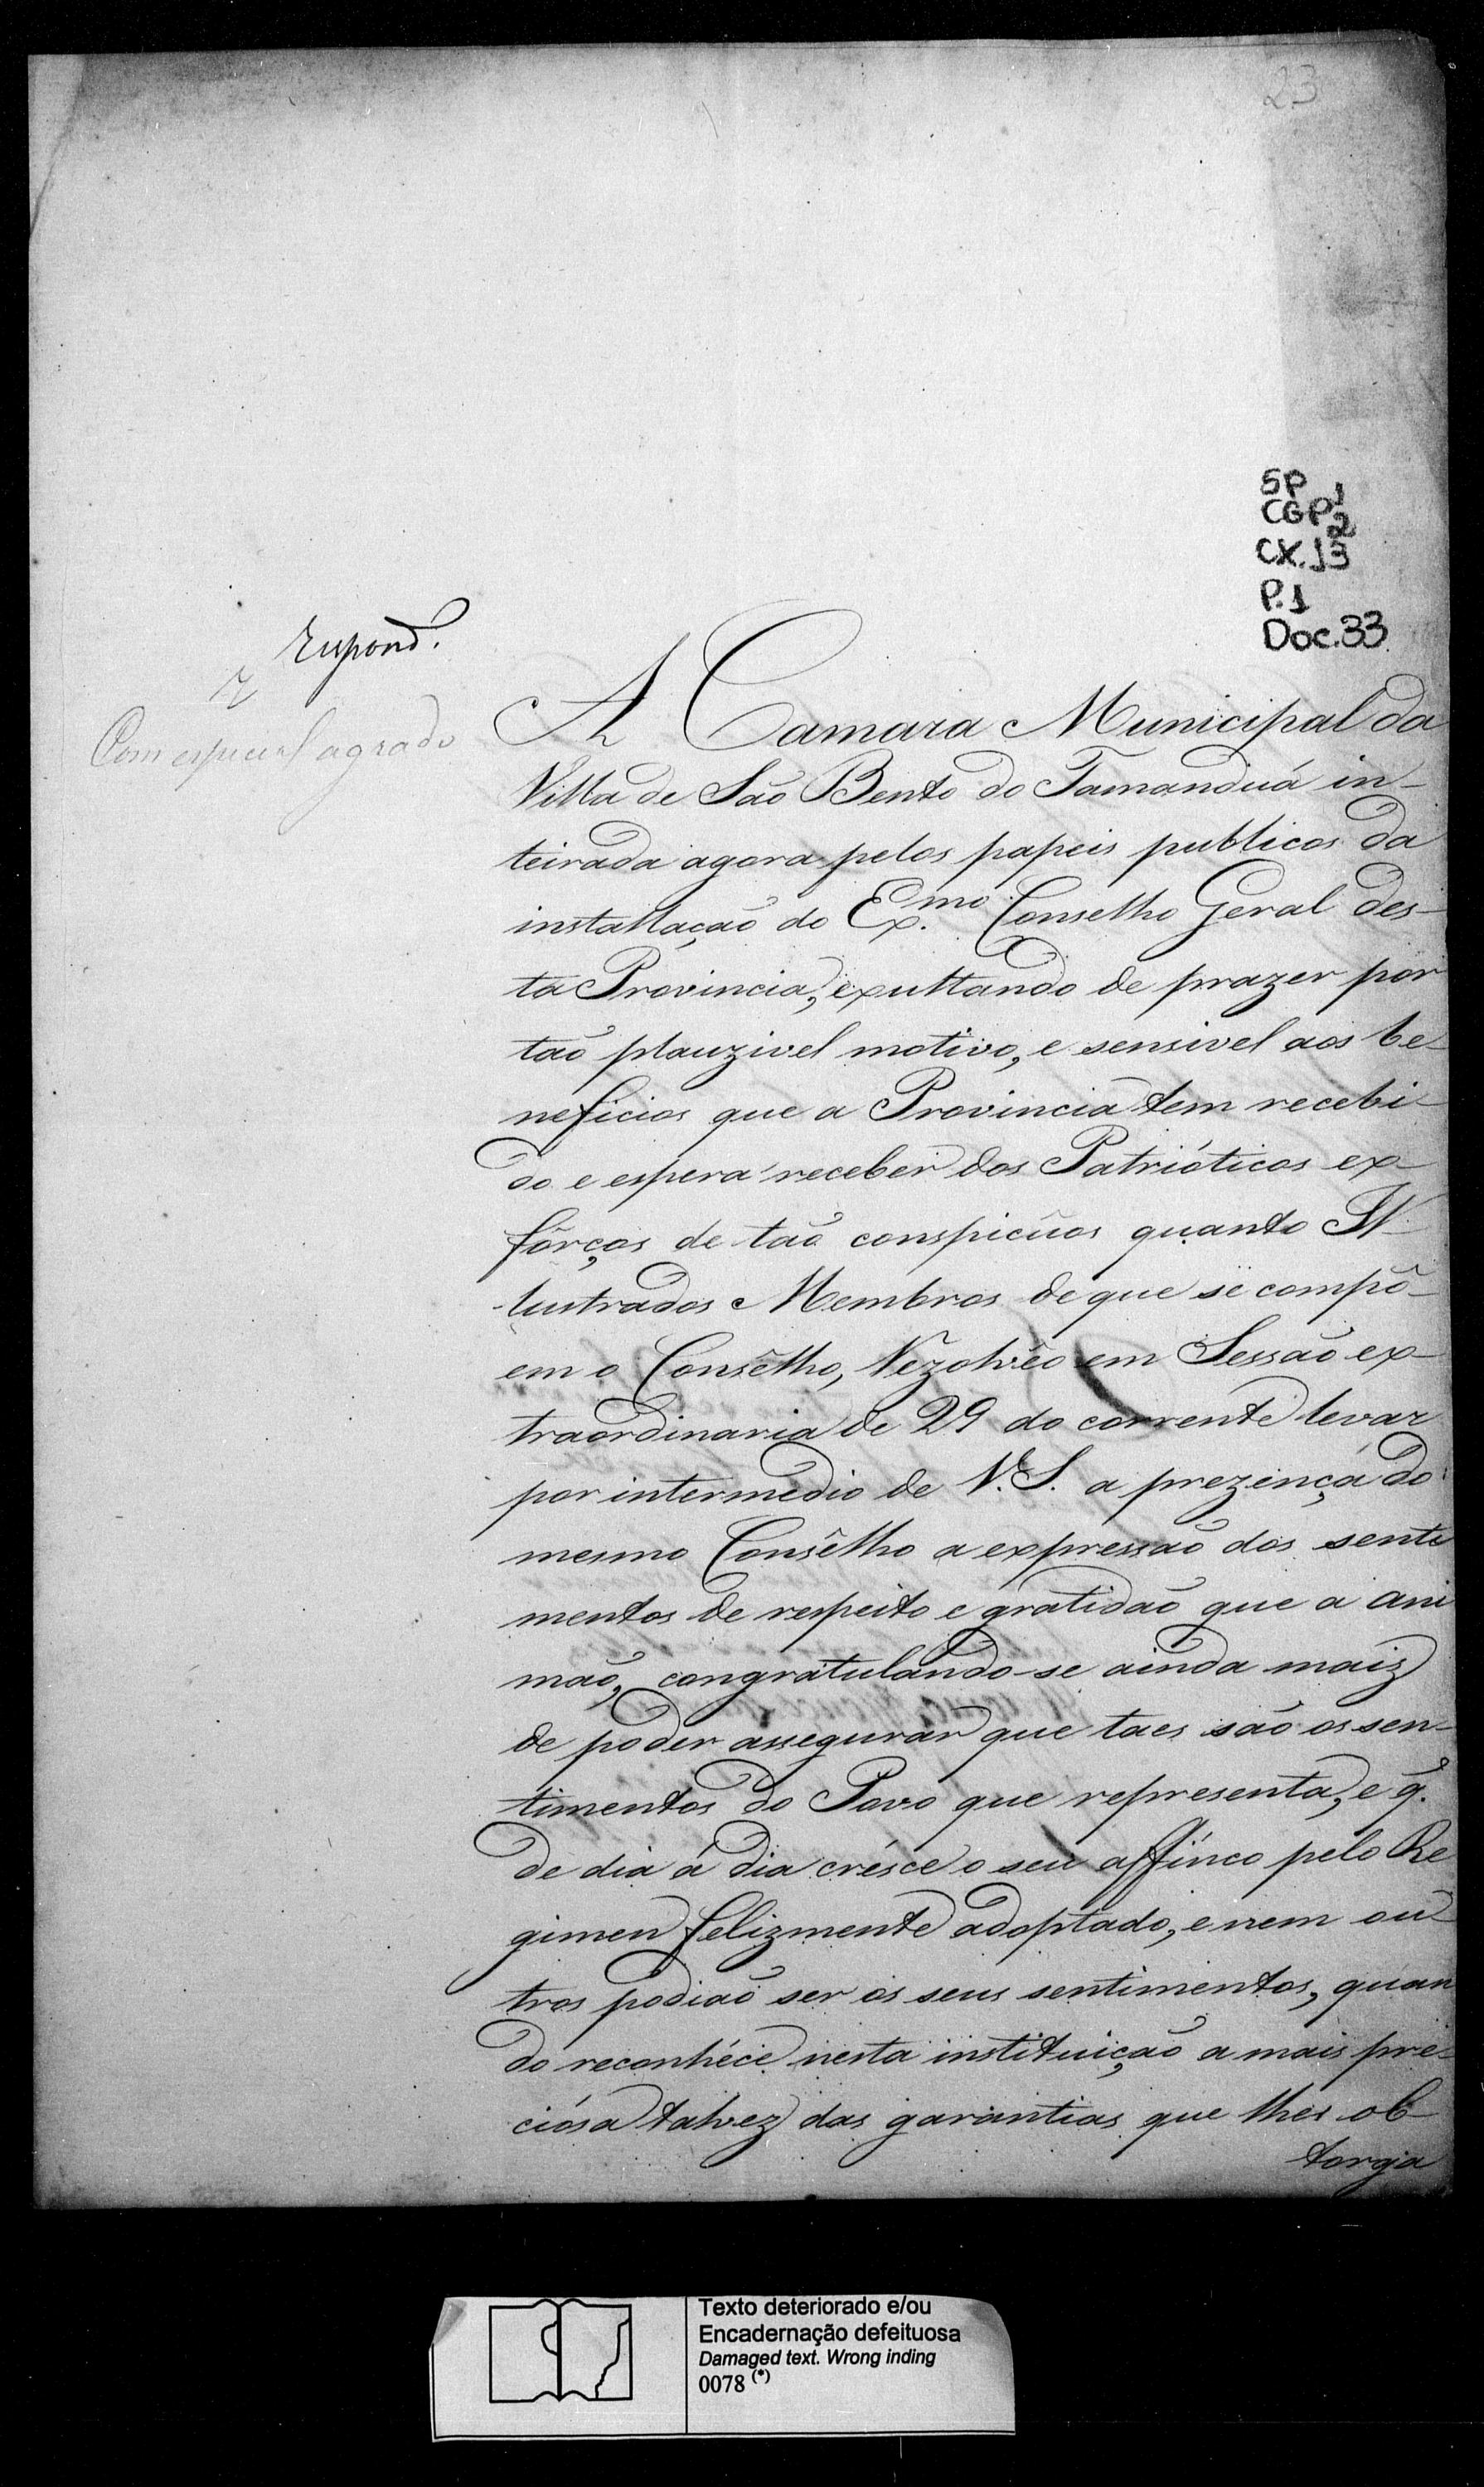 23
SP 1
CGP 2
CX. 13
P. 1
Doc. 33
Respond.
R
Com especial agrado
A Camara Municipal da
Villa de São Bento do Tamanduá in-
teirada agora pelos papeis publicos da
installação do Ex.mo Conselho Geral des-
ta Provincia, exultando de prazer por
taõ plauzivel motivo, e sensivel aos be-
neficios que a Provincia tem recebi-
do e espera receber dos Patrióticos ex-
fôrços de taõ conspicûos quanto Il-
lustrados Membros de que se compõ-
em o Consêlho, Rezolvêo em Sessaõ ex-
traordinaria de 29 do corrente levar
por intermedio de V. S. a prezença do
mesmo Consêlho a expressaõ dos senti
mentos de respeito e gratidaõ que a ani
maõ, congratulando-se ainda maiz
de poder assegurar que taes saõ os sen-
timentos do Povo que representa, e q.
de dia á dia crésce o seu affinco pelo Re
gimen felizmente adoptado, e nem ou-
tros podiaõ ser os seus sentimentos, quan
do reconhéce nesta instituiçaõ a mais pre-
ciósa talvez das garantias que lhes ob-
torga
Texto deteriorado e/ou
Encadernação defeituosa
Damaged text. Wrong inding
0078 (*)